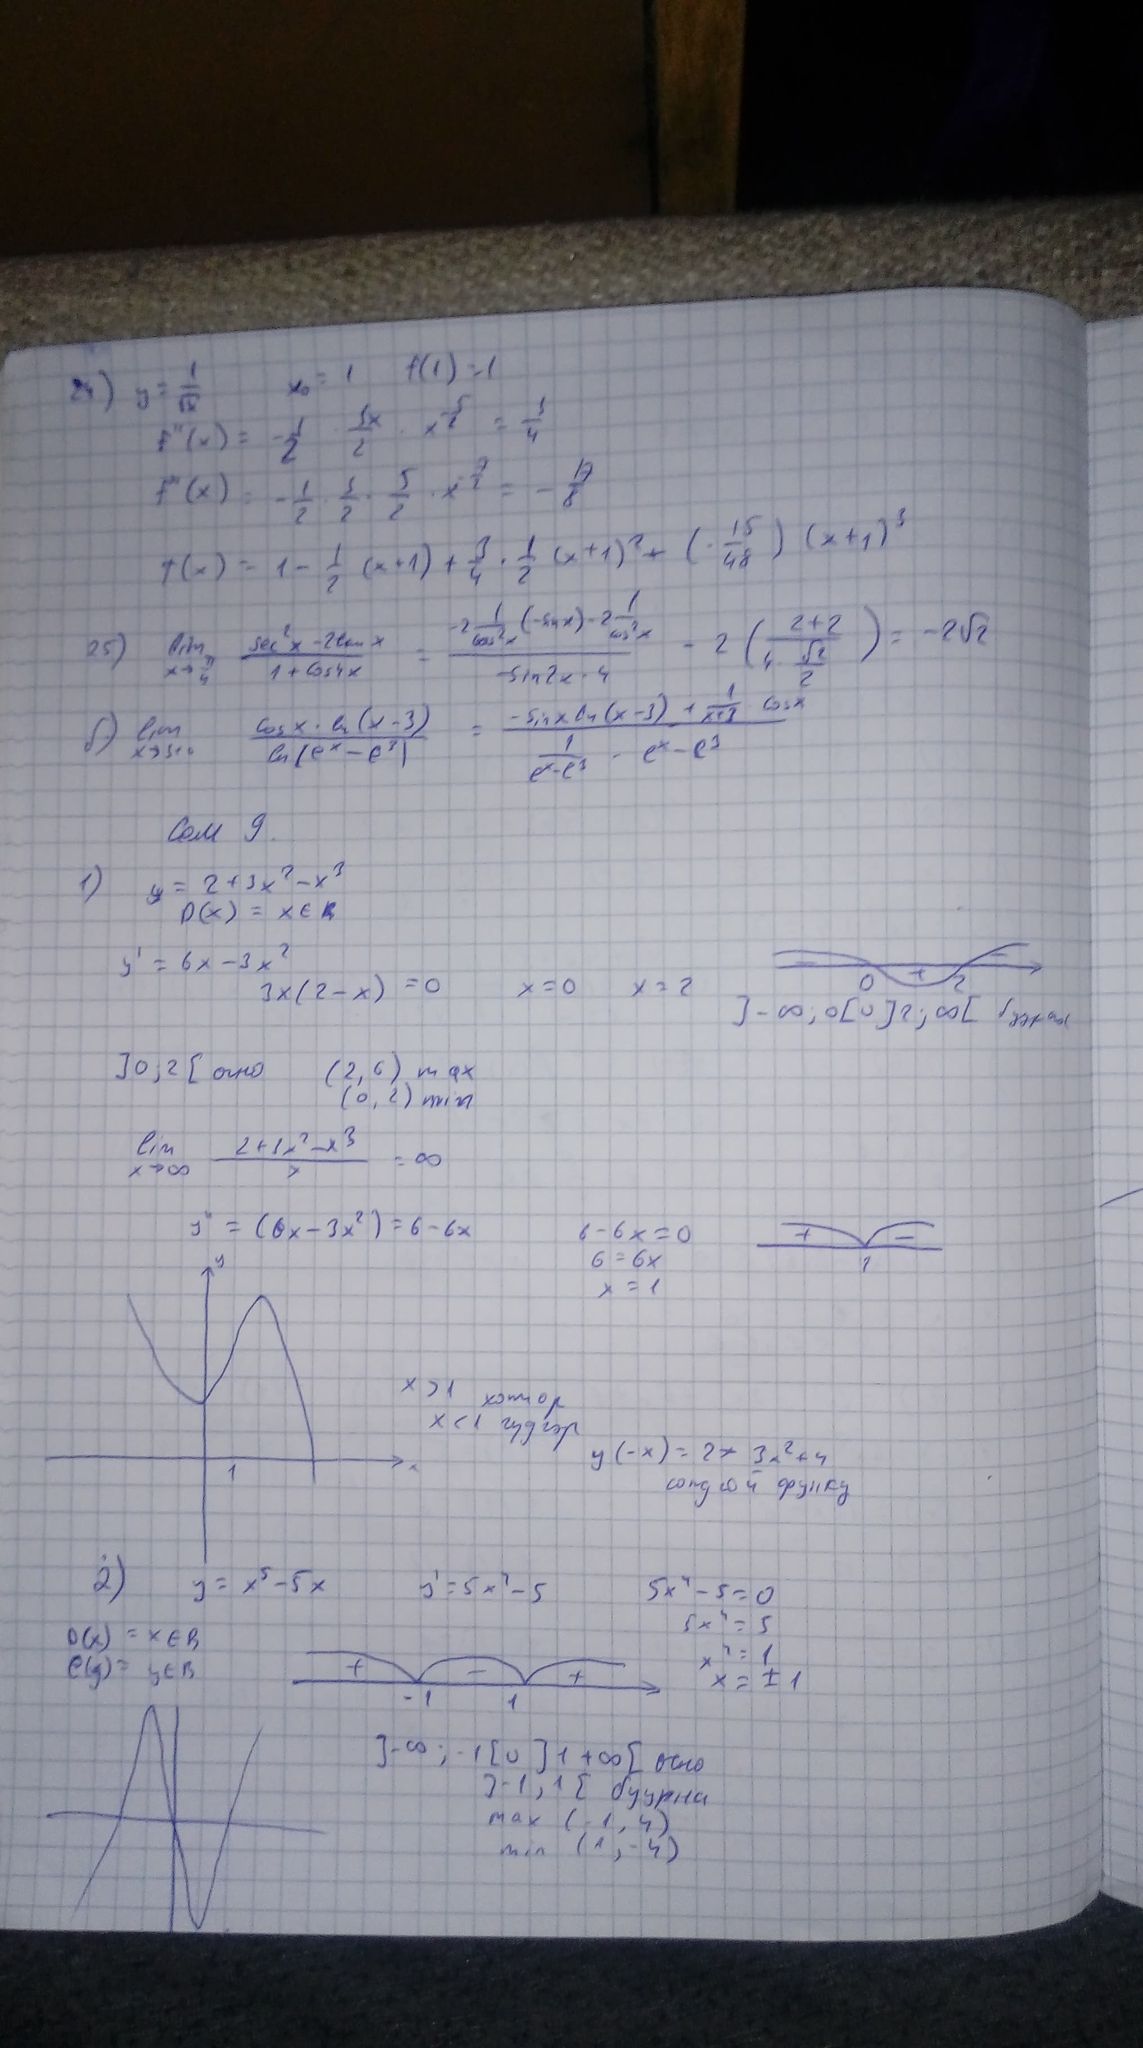 24) y = 1/√x    x₀ = 1    f(1) = 1
f''(x) = -1/2 · 3x/2 · x^(-5/2) = 3/4
f'''(x) = -1/2 · 3/2 · 5/2 · x^(-7/2) = -
f(x) = 1 - 1/2 (x+1) + 3/4 · 1/2 (x+1)² + (-15/48) (x+1)³
25) lim x→π/4 (sec²x - 2tan x)/(1+cos4x) = (-2 1/cos²x (-sinx) - 2 1/cos²x)/(-sin2x · 4) - 2 ((2+2)/(4 · √2/2)) = -2√2
б) lim (cosx · ln(x-3))/(ln|eˣ - e³|) = (-sinx ln(x-3) + 1/(x+3) · cosx)/(1/(eˣ-e³) - eˣ - e³)
Сем 9.
1) y = 2+3x²-x³
D(x) = x∈R
y' = 6x-3x²
3x(2-x) = 0    x=0    x=2
- + -
0 2
]-∞;0[U]2;∞[ буурна
]0;2[ өснө    (2,6) max
(0,2) min
lim x→∞ (2+3x²-x³)/x = ∞
y'' = (6x-3x²) = 6-6x    6-6x=0    + -
6=6x    1
x=1
y
x>1 хотгор
x<1 гүдгэр
1    x
y(-x) =
сондгой функц
2) y = x⁵-5x    y' = 5x⁴-5    5x⁴-5=0
D(x) = x∈R    5x⁴=5
E(y) = y∈R    + - +    x⁴=1
-1 1    x=±1
]-∞;-1[U]1+∞[ өснө
]-1,1[ буурна
max (-1,4)
min (1,-4)